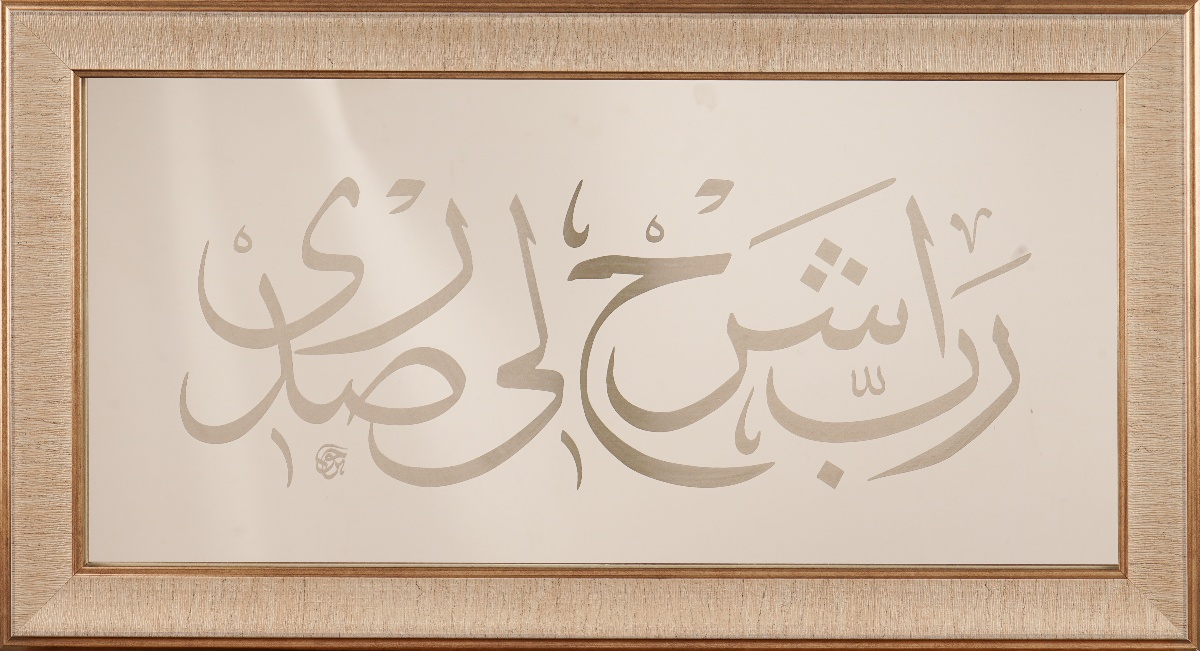 رب اشرح لي صدري